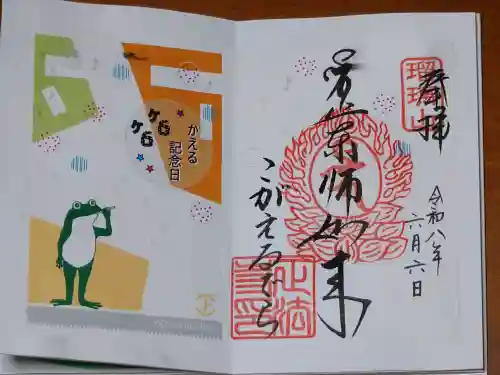 かえる
記念日
ケロ
ケロ
奉拝
瑠璃山
薬師如来
こがえるでら
令和八年
六月六日